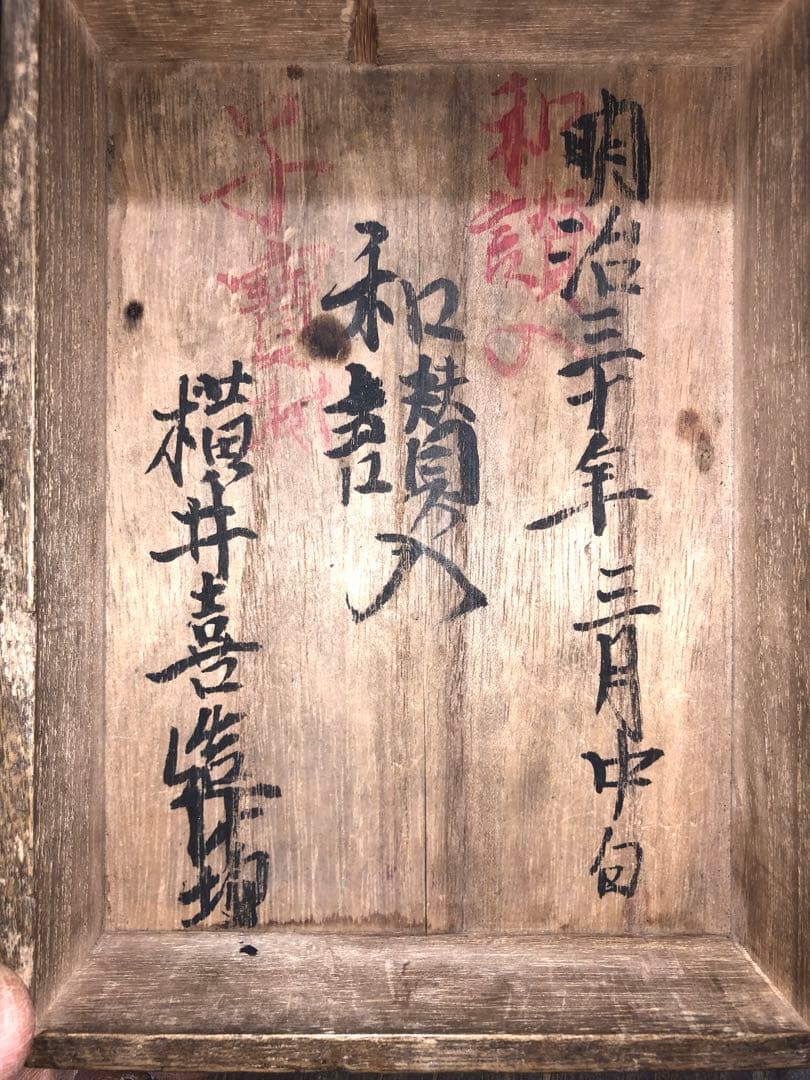 明治三十年三月中旬
和讃入
和讃入
横井喜造作